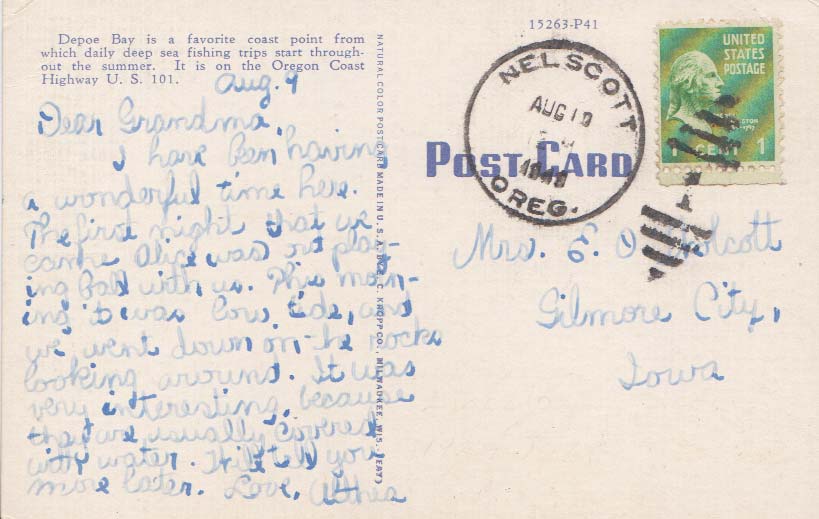 Depoe Bay is a favorite coast point from
which daily deep sea fishing trips start through-
out the summer. It is on the Oregon Coast
Highway U. S. 101.
Aug. 9
Dear Grandma,
I have been having
a wonderful time here.
The first night that we
came Alice was out play-
ing ball with us. This morn-
ing it was low tide, and
we went down on the rocks
looking around. It was
very interesting, because
they are usually covered
with water. I'll tell you
more later. Love, Althea
NATURAL COLOR POST CARD MADE IN U. S. A. BY E. C. KROPP CO., MILWAUKEE, WIS.
15263-P41
POST CARD
NELSCOTT
AUG 10
OREG.
UNITED
STATES
POSTAGE
1 CENT 1
Mrs. E. O. Wolcott
Gilmore City,
Iowa